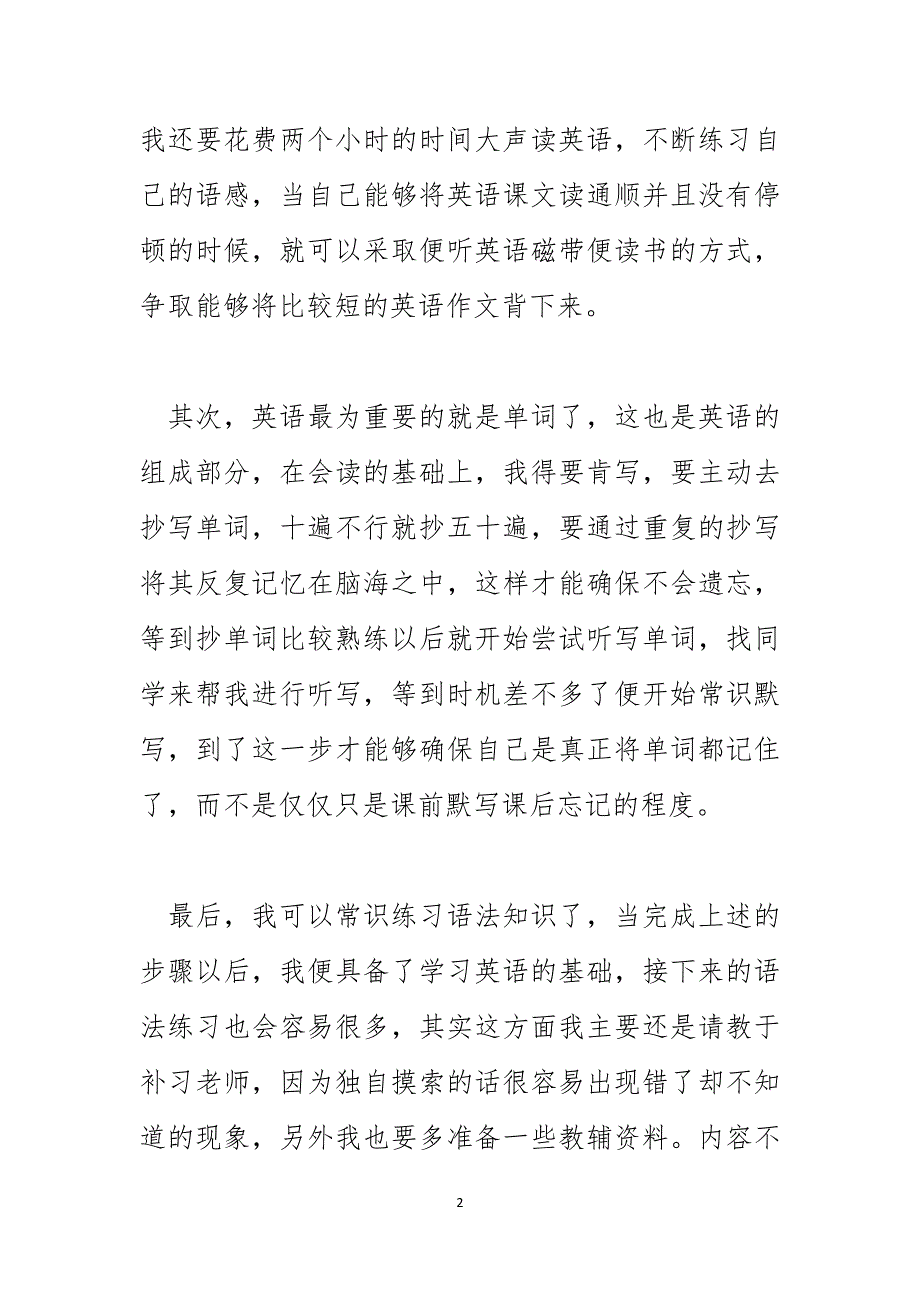 我还要花费两个小时的时间大声读英语，不断练习自
己的语感，当自己能够将英语课文读通顺并且没有停
顿的时候，就可以采取便听英语磁带便读书的方式，
争取能够将比较短的英语作文背下来。
其次，英语最为重要的就是单词了，这也是英语的
组成部分，在会读的基础上，我得要肯写，要主动去
抄写单词，十遍不行就抄五十遍，要通过重复的抄写
将其反复记忆在脑海之中，这样才能确保不会遗忘，
等到抄单词比较熟练以后就开始尝试听写单词，找同
学来帮我进行听写，等到时机差不多了便开始常识默
写，到了这一步才能够确保自己是真正将单词都记住
了，而不是仅仅只是课前默写课后忘记的程度。
最后，我可以常识练习语法知识了，当完成上述的
步骤以后，我便具备了学习英语的基础，接下来的语
法练习也会容易很多，其实这方面我主要还是请教于
补习老师，因为独自摸索的话很容易出现错了却不知
道的现象，另外我也要多准备一些教辅资料。内容不
2